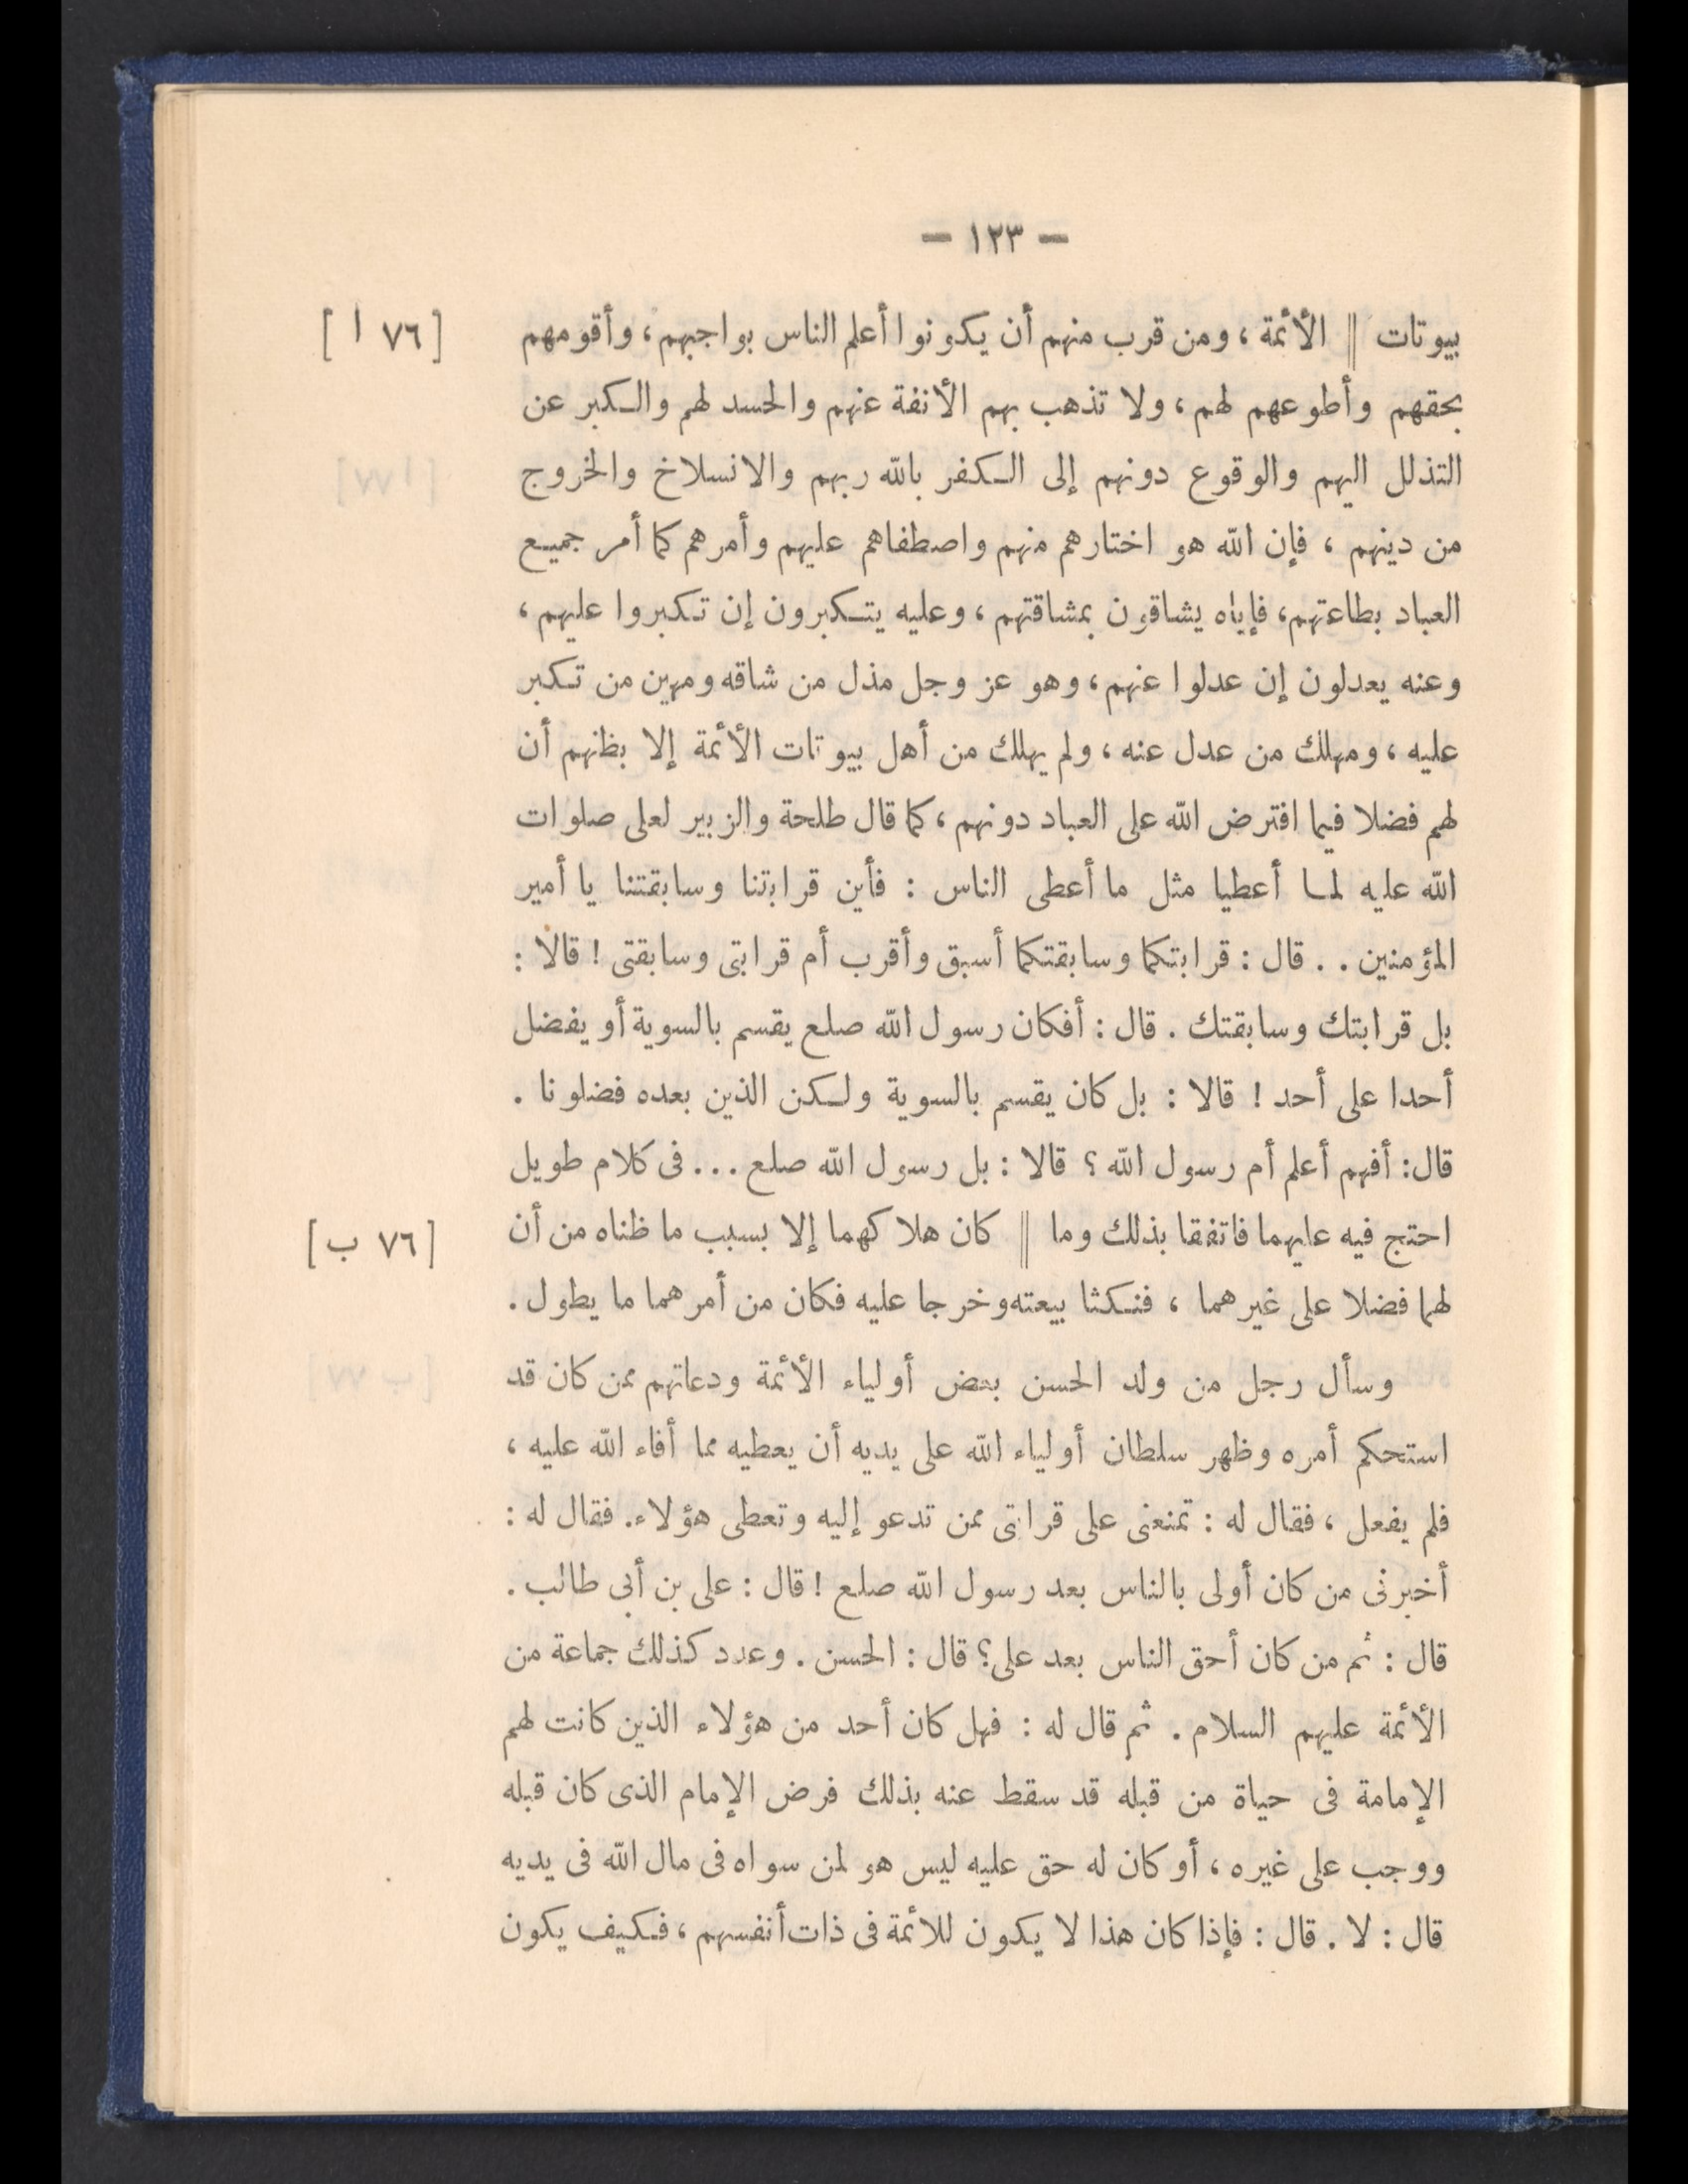 — ١٢٣ —
بيوتات || الأئمة ، ومن قرب منهم أن يكونوا أعلم الناس بواجبهم ، وأقومهم [ ٧٦ ا ]
بحقهم وأطوعهم لهم ، ولا تذهب بهم الأنفة عنهم والحسد لهم والكبر عن
التذلل اليهم والوقوع دونهم إلى الكفر بالله ربهم والانسلاخ والخروج
من دينهم ، فإن الله هو اختارهم منهم واصطفاهم عليهم وأمرهم كما أمر جميع
العباد بطاعتهم، فإياه يشاقون بمشاقتهم ، وعليه يتكبرون إن تكبروا عليهم ،
وعنه يعدلون إن عدلوا عنهم ، وهو عز وجل مذل من شاقه ومهين من تكبر
عليه ، ومهلك من عدل عنه ، ولم يهلك من أهل بيوتات الأئمة إلا بظنهم أن
لهم فضلا فيما افترض الله على العباد دونهم ، كما قال طلحة والزبير لعلى صلوات
الله عليه لما أعطيا مثل ما أعطى الناس : فأين قرابتنا وسابقتنا يا أمير
المؤمنين . . قال : قرابتكما وسابقتكما أسبق وأقرب أم قرابتى وسابقتى ! قالا :
بل قرابتك وسابقتك . قال : أفكان رسول الله صلع يقسم بالسوية أو يفضل
أحدا على أحد ! قالا : بل كان يقسم بالسوية ولكن الذين بعده فضلونا .
قال: أفهم أعلم أم رسول الله ؟ قالا : بل رسول الله صلع ... فى كلام طويل
احتج فيه عليهما فاتفقا بذلك وما || كان هلاكهما إلا بسبب ما ظناه من أن [ ٧٦ ب ]
لهما فضلا على غيرهما ، فنكثا بيعته وخرجا عليه فكان من أمرهما ما يطول .
وسأل رجل من ولد الحسن بعض أولياء الأئمة ودعاتهم ممن كان قد
استحكم أمره وظهر سلطان أولياء الله على يديه أن يعطيه مما أفاء الله عليه ،
فلم يفعل ، فقال له : تمنعنى على قرابتى ممن تدعو إليه وتعطى هؤلاء. فقال له :
أخبرنى من كان أولى بالناس بعد رسول الله صلع ! قال : على بن أبى طالب .
قال : ثم من كان أحق الناس بعد على؟ قال : الحسن . وعدد كذلك جماعة من
الأئمة عليهم السلام . ثم قال له : فهل كان أحد من هؤلاء الذين كانت لهم
الإمامة فى حياة من قبله قد سقط عنه بذلك فرض الإمام الذى كان قبله
ووجب على غيره ، أو كان له حق عليه ليس هو لمن سواه فى مال الله فى يديه
قال : لا . قال : فإذا كان هذا لا يكون للائمة فى ذات أنفسهم ، فكيف يكون